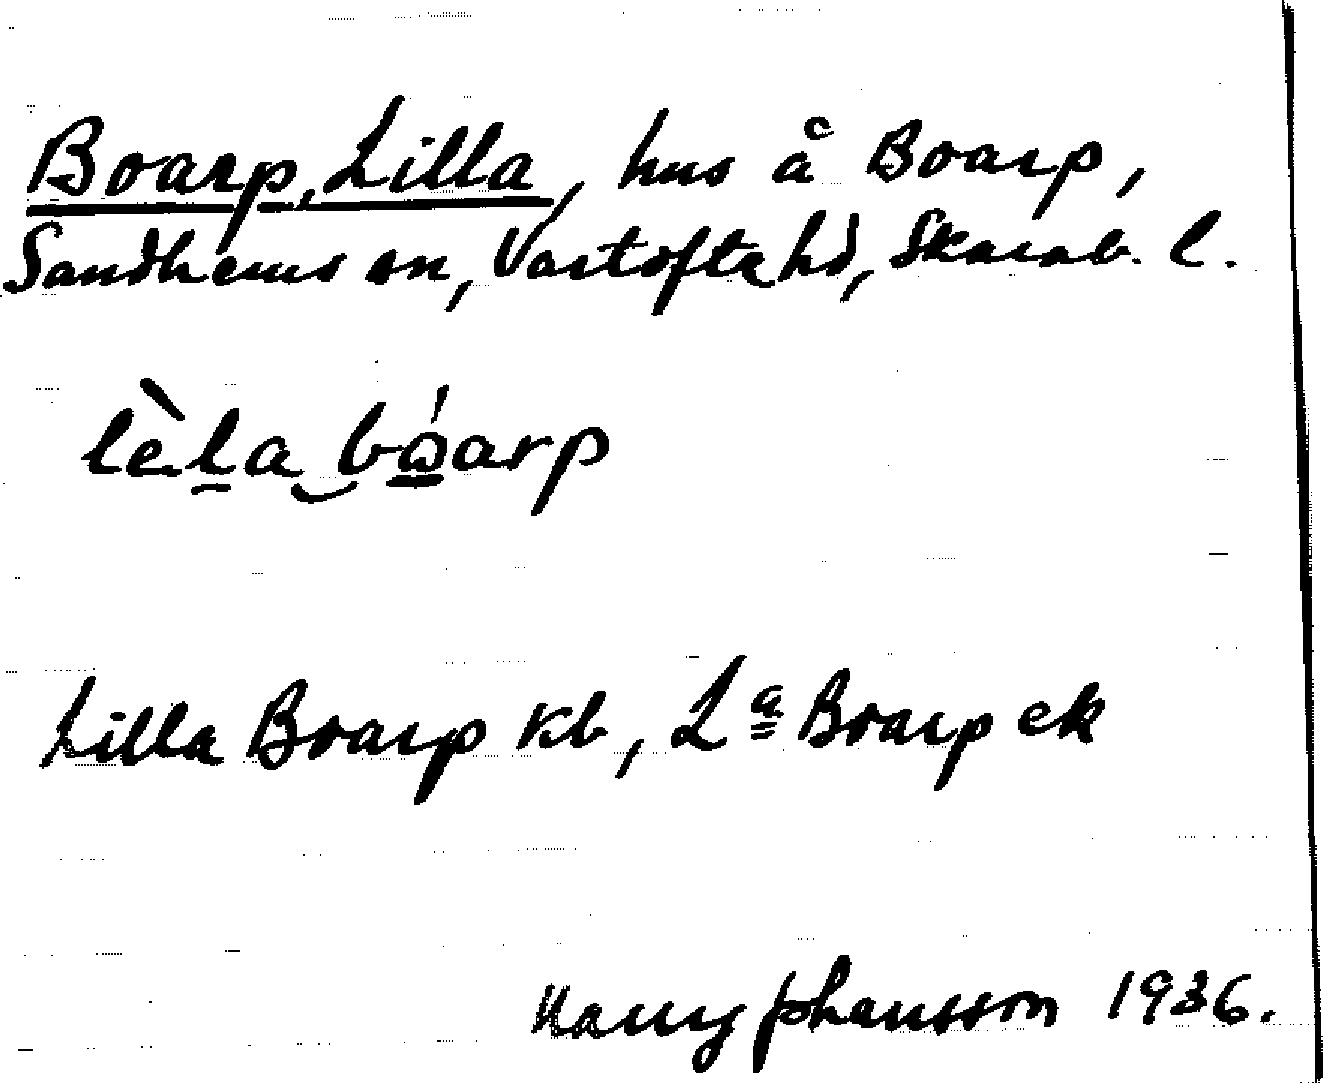 Boarp, Lilla, hus å Boarp,
Sandhems sn, Vartofta hd, Skarab. l.
lèla bóarp
Lilla Boarp kb, Lª Boarp ek
Harry Johansson 1936.